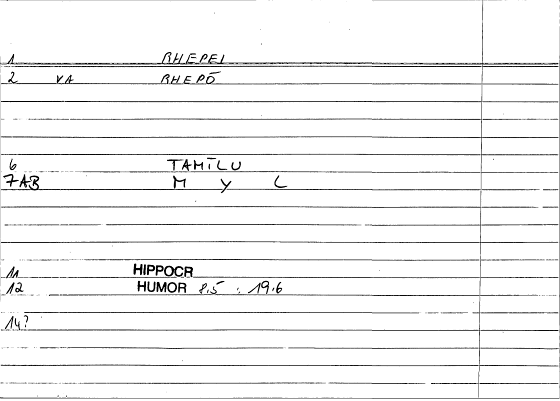 1 RHEPEI
2 VA RHEPŌ
6 TAMĪLU
7AB M Y L
11 HIPPOCR
12 HUMOR 8.5 : 19.6
14?